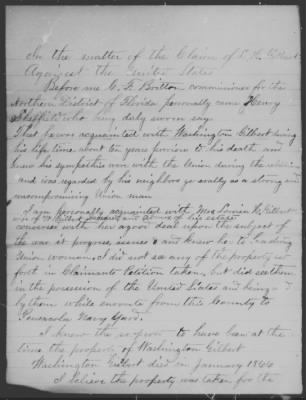 In the matter of the Claim of L. H. Gilbert
Against the United States
Before me C. F. Britton commissioner for the
Northern District of Florida personally came Henry
Sheffield who being duly sworn say
That he was acquainted with Washington Gilbert during
his life time about ten years previous to his death, and
knew his sympathies were with the Union during the
and was regarded by his neighbors generally as a strong and
uncompromising Union man
I am personally acquainted with Mrs Louisa H. Gilbert
of his estate
conversed with her a good deal upon the subject of
the war it progress, issues & and know her to be a strong
Union woman. I did not see any of the property set
forth in Claimants Petition taken, but did see them
in the possession of the United States and being
by them while enroute from this County to
Pensacola Navy Yard.
I know the to have been at the
time the property of Washington Gilbert
Washington Gilbert died in January 1866
I believe the property was taken for the